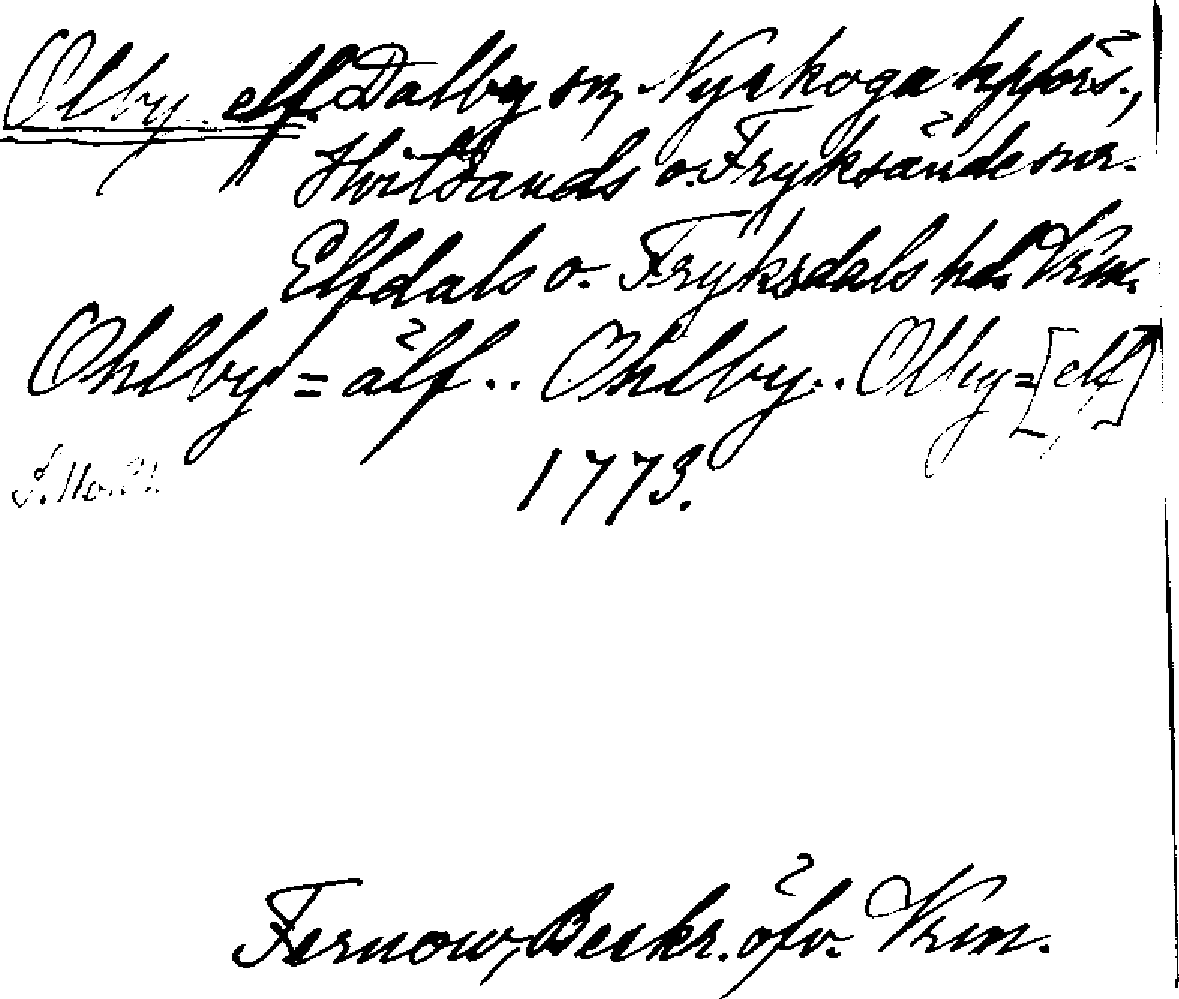 Olby elf. Dalby sn, Nyskoga kpförs.,
Hvitsands o. Fryksände snr.
Elfdals o. Fryksdals hd. Vrm.
Ohlby=älf.. Ohlby.. Olby=[elf]
1773.
Fernow, Beskr. öfv. Vrm.